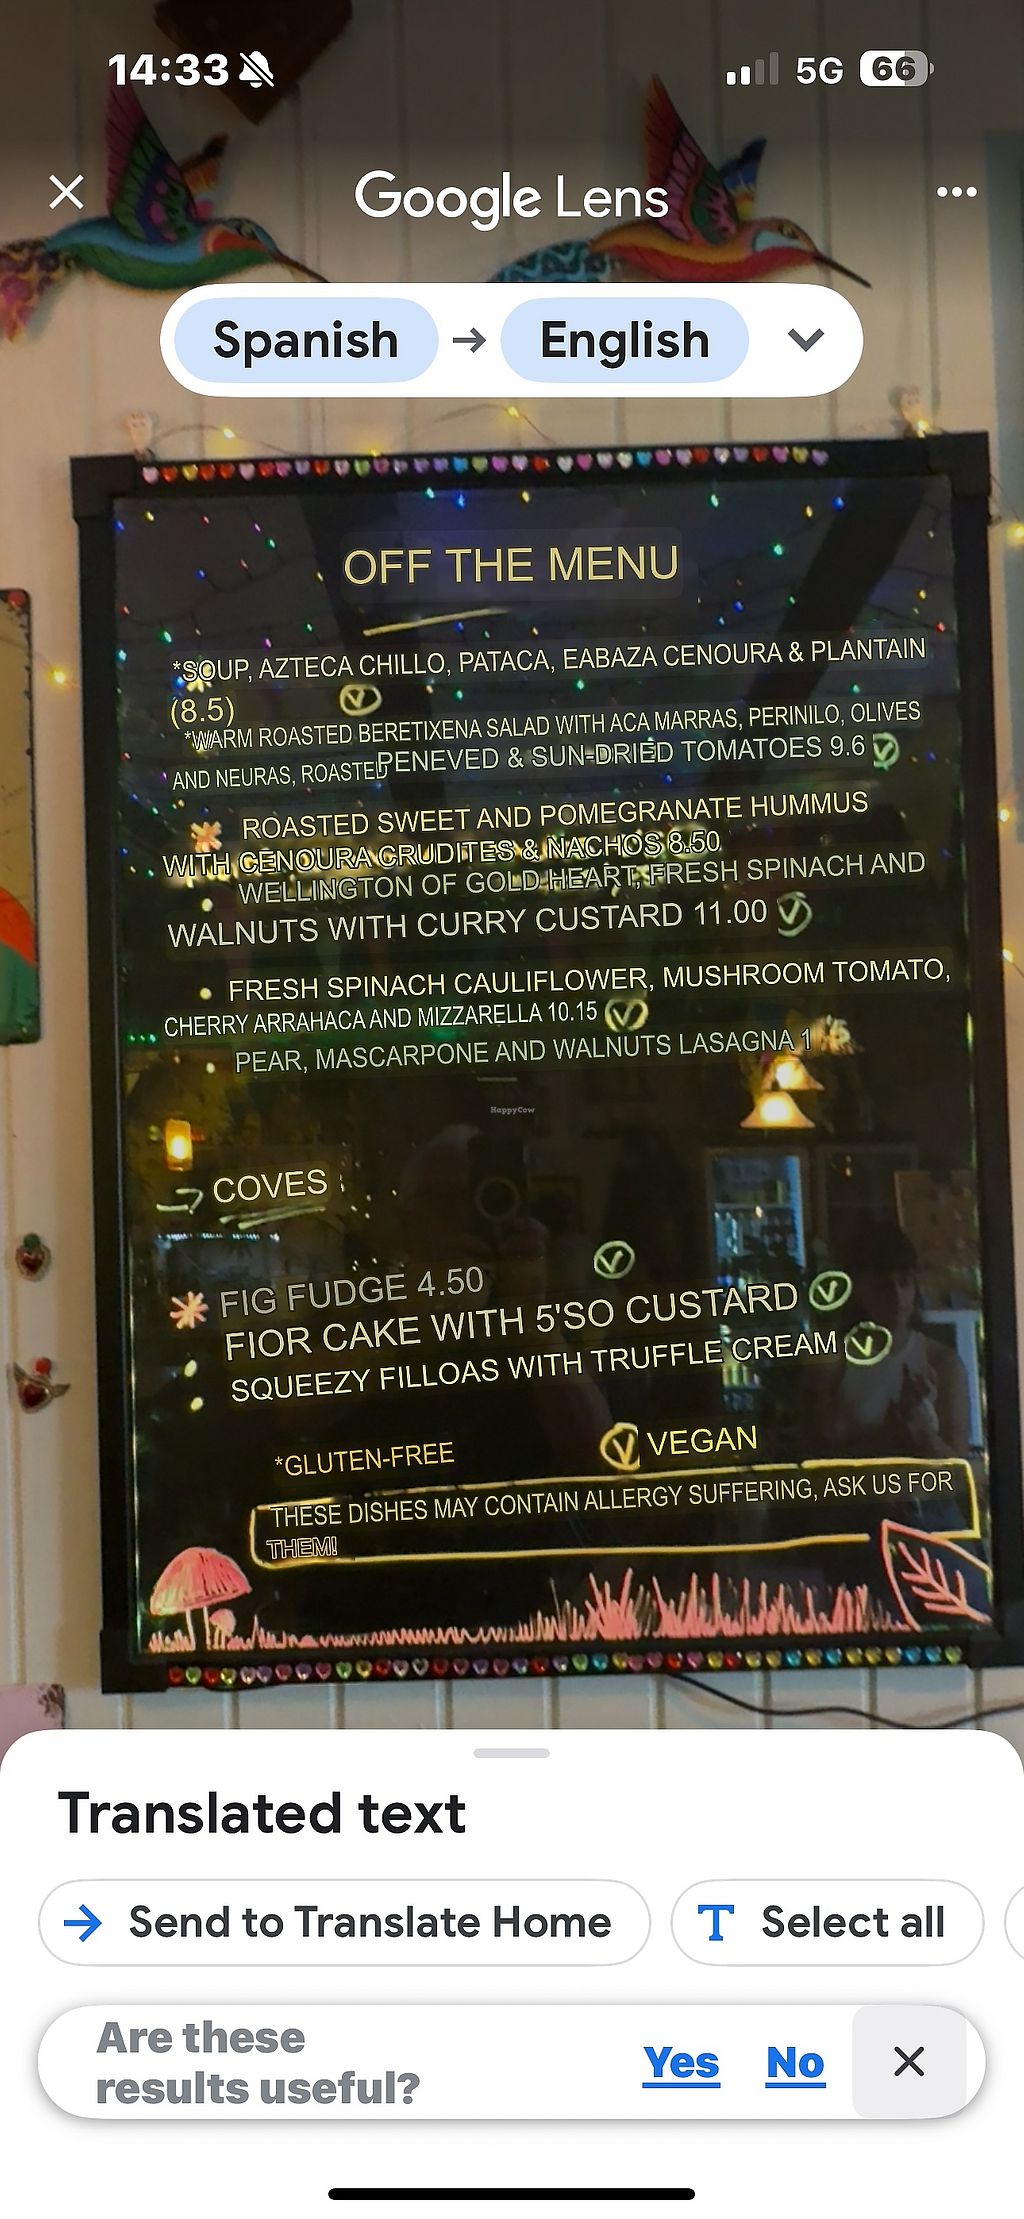 14:33
5G 66
Google Lens
Spanish → English
OFF THE MENU
*SOUP, AZTECA CHILLO, PATACA, EABAZA CENOURA & PLANTAIN
(8.5)
*WARM ROASTED BERETIXENA SALAD WITH ACA MARRAS, PERINILO, OLIVES
AND NEURAS, ROASTED PENEVED & SUN-DRIED TOMATOES 9.6
ROASTED SWEET AND POMEGRANATE HUMMUS
WITH CENOURA CRUDITES & NACHOS 8.50
WELLINGTON OF GOLD HEART, FRESH SPINACH AND
WALNUTS WITH CURRY CUSTARD 11.00 V
• FRESH SPINACH CAULIFLOWER, MUSHROOM TOMATO,
CHERRY ARRAHACA AND MIZZARELLA 10.15 V
PEAR, MASCARPONE AND WALNUTS LASAGNA 1
HappyCow
COVES
FIG FUDGE 4.50 V
FIOR CAKE WITH 5'SO CUSTARD V
SQUEEZY FILLOAS WITH TRUFFLE CREAM V
*GLUTEN-FREE V VEGAN
THESE DISHES MAY CONTAIN ALLERGY SUFFERING, ASK US FOR
THEM!
Translated text
Send to Translate Home
Select all
Are these
results useful?
Yes No